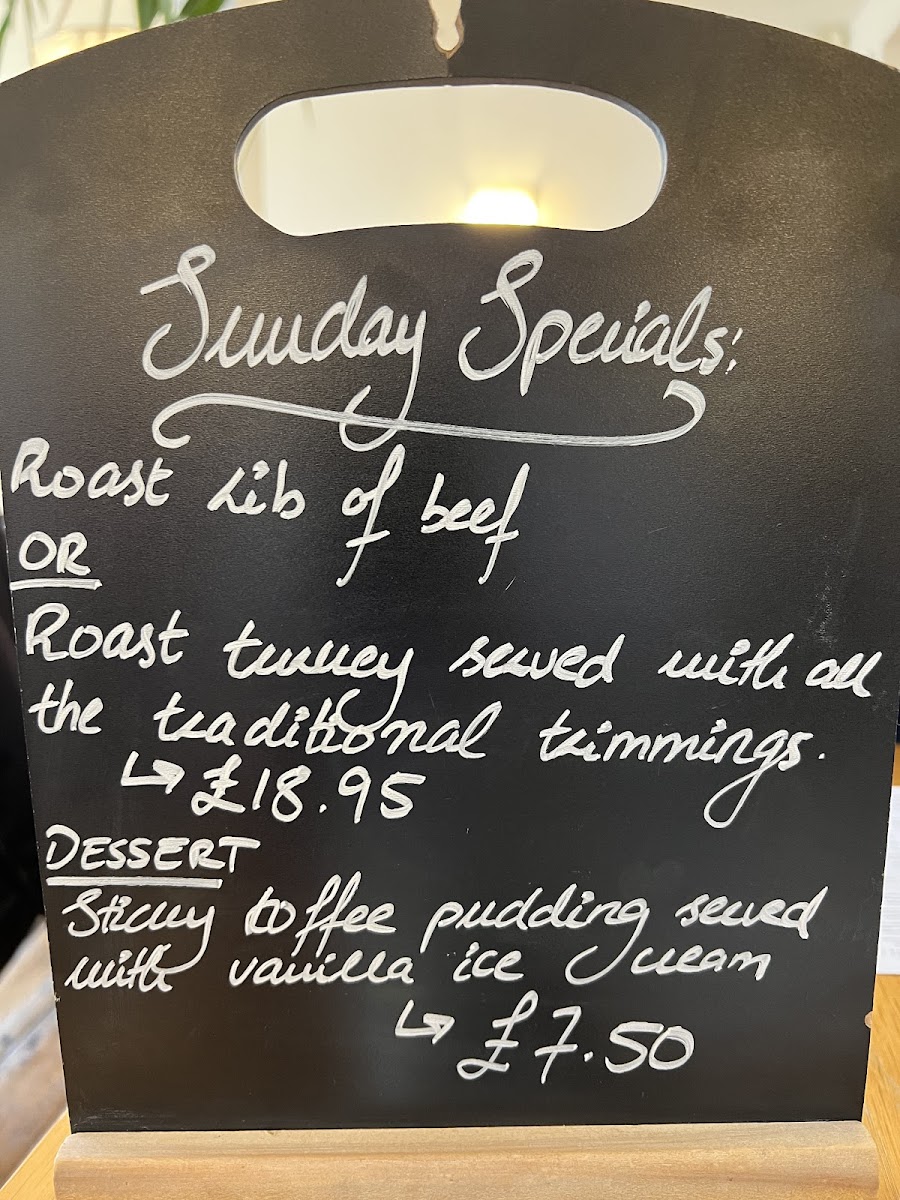 Sunday Specials:
Roast rib of beef
OR
Roast turkey served with all
the traditional trimmings.
↳ £18.95
DESSERT
Sticky toffee pudding served
with vanilla ice cream
↳ £7.50